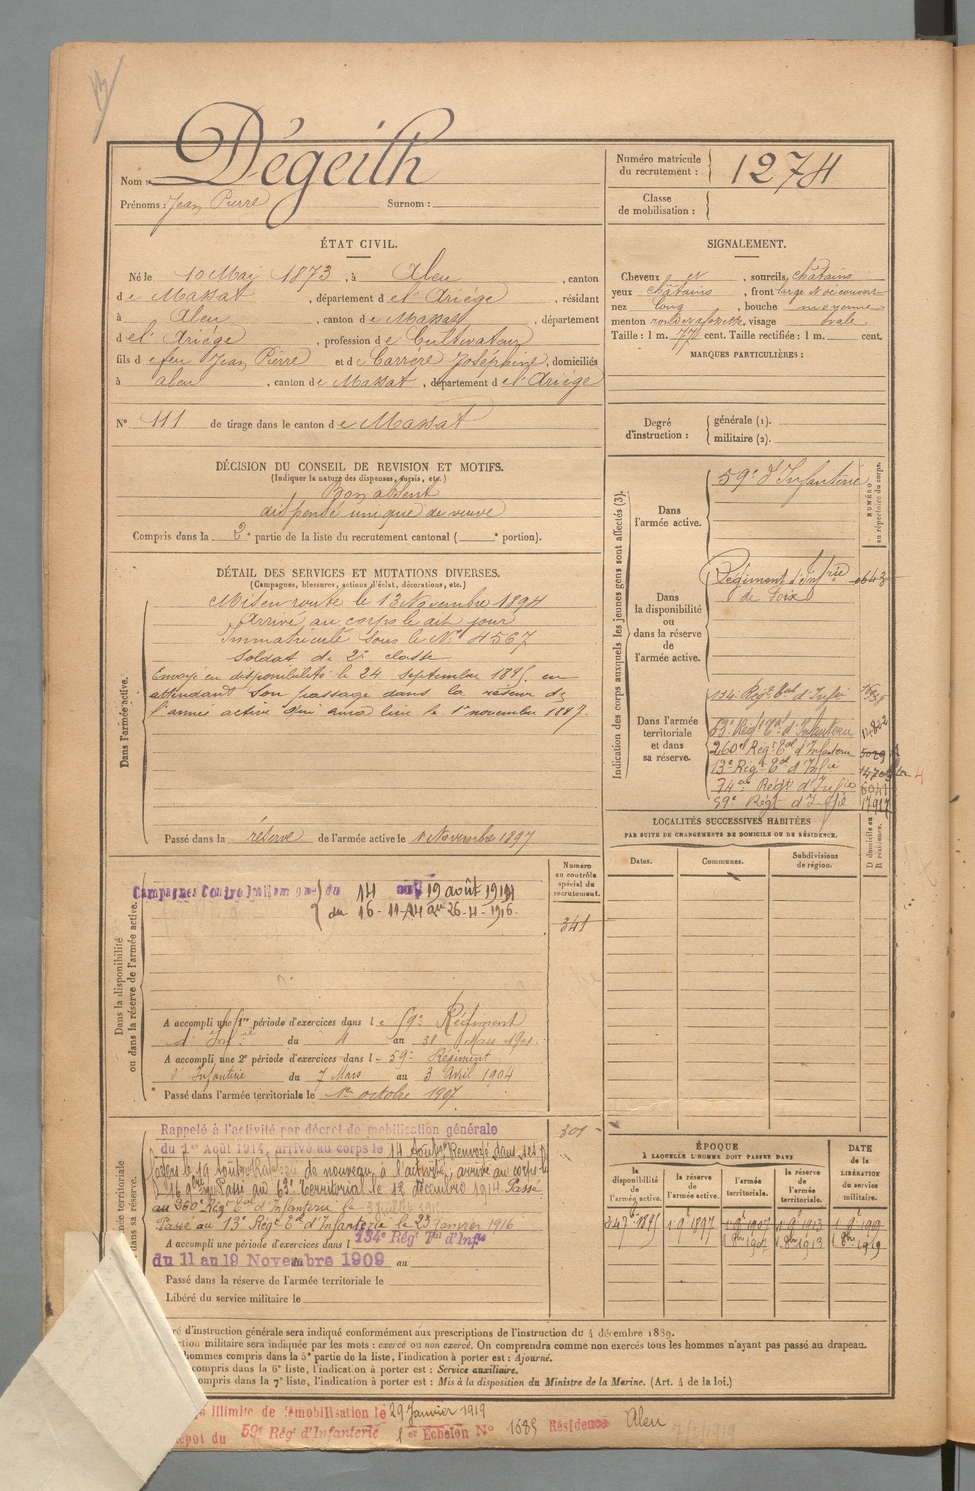 Nom : Dégeilh
Prénoms : Jean Pierre Surnom :
Numéro matricule du recrutement : 1274
Classe de mobilisation :
ÉTAT CIVIL.
Né le 10 Mai 1873, à Aleu, canton
de Massat, département de l'Ariège, résidant
à Aleu, canton de Massat, département
de l'Ariège, profession de Cultivateur
fils de feu Jean Pierre et de Carrere Joséphine, domiciliés
à aleu, canton de Massat, département de l'Ariège
N° 111 de tirage dans le canton de Massat
SIGNALEMENT.
Cheveux et, sourcils, châtains
yeux châtains, front large et découvert
nez long, bouche moyenne
menton rond et à fossette, visage ovale
Taille : 1 m. cent. Taille rectifiée : 1 m. cent.
MARQUES PARTICULIÈRES :
Degré d'instruction : générale (1).
militaire (2).
DÉCISION DU CONSEIL DE REVISION ET MOTIFS.
(Indiquer la nature des dispenses, sursis, etc.)
Bon absent
dispensé unique de veuve
Compris dans la 2e partie de la liste du recrutement cantonal ( e portion).
DÉTAIL DES SERVICES ET MUTATIONS DIVERSES.
(Campagnes, blessures, actions d'éclat, décorations, etc.)
Dans l'armée active.
Mis en route le 13 Novembre 1894
Arrivé au corps le dit jour
Immatriculé sous le N° 4567
Soldat de 2e classe
Envoyé en disponibilité le 24 Septembre 1895, en
attendant son passage dans la réserve de
l'armée active qui aura lieu le 1er novembre 1897.
Passé dans la réserve de l'armée active le 1 Novembre 1897
Indication des corps auxquels les jeunes gens sont affectés (3).
NUMÉRO au répertoire du corps.
Dans l'armée active.
59e d'Infanterie
Dans la disponibilité ou dans la réserve de l'armée active.
Régiment d'Infrie
de Foix
Dans l'armée territoriale et dans sa réserve.
134e Régt Tal d'Infie
63e Régt Tal d'Infanterie
260e Régt Tal d'Infanterie
13e Régt Tal d'Infie
Régt d'Infie
59e Régt d'Infie
LOCALITÉS SUCCESSIVES HABITÉES
PAR SUITE DE CHANGEMENTS DE DOMICILE OU DE RÉSIDENCE.
Dates. Communes. Subdivisions de région.
D domicile ou R résidence.
Numéro au contrôle spécial du recrutement.
341
Dans la disponibilité ou dans la réserve de l'armée active.
Campagnes Contre l'allemagne du 14 au 19 août 1914
du 16-11-14 au 26-4-1916.
A accompli une 1re période d'exercices dans le 59e Régiment
d'Infie du 4 au 31 Mars 1901.
A accompli une 2e période d'exercices dans l 59e Régiment
d'Infanterie du 7 Mars au 3 Avril 1904
Passé dans l'armée territoriale le 1er octobre 1907
301
Rappelé à l'activité par décret de mobilisation générale
du 1er Août 1914, arrivé au corps le 14 août Renvoyé dans ses
foyers le 19 août Rappelé de nouveau à l'activité, arrivé au corps le
16 9bre Passé au 63e Territorial le 12 décembre 1914 Passé
au 260e Régt Tal d'Infanterie le
Passé au 13e Régt Tal d'Infanterie le 23 janvier 1916
A accompli une période d'exercices dans l 134e Régt Tal d'Infie
du 11 au 19 Novembre 1909 au
Passé dans la réserve de l'armée territoriale le
Libéré du service militaire le
ÉPOQUE
À LAQUELLE L'HOMME DOIT PASSER DANS
la disponibilité de l'armée active.
la réserve de l'armée active.
l'armée territoriale.
la réserve de l'armée territoriale.
DATE de la LIBÉRATION du service militaire.
24 7bre 1895 1 9bre 1897 1 9bre 1907 1 9bre 1913 1 9bre 1919
1 8bre 1907 1 8bre 1913 1 8bre 1919
d'instruction générale sera indiqué conformément aux prescriptions de l'instruction du 4 décembre 1889.
militaire sera indiquée par les mots : exercé ou non exercé. On comprendra comme non exercés tous les hommes n'ayant pas passé au drapeau.
hommes compris dans la 5e partie de la liste, l'indication à porter est : Ajourné.
compris dans la 6e liste, l'indication à porter est : Service auxiliaire.
compris dans la 7e liste, l'indication à porter est : Mis à la disposition du Ministre de la Marine. (Art. 4 de la loi.)
illimité de démobilisation le 29 Janvier 1919
Dépot du 59e Régt d'Infanterie 1er Echelon N° 1685 Résidence Aleu